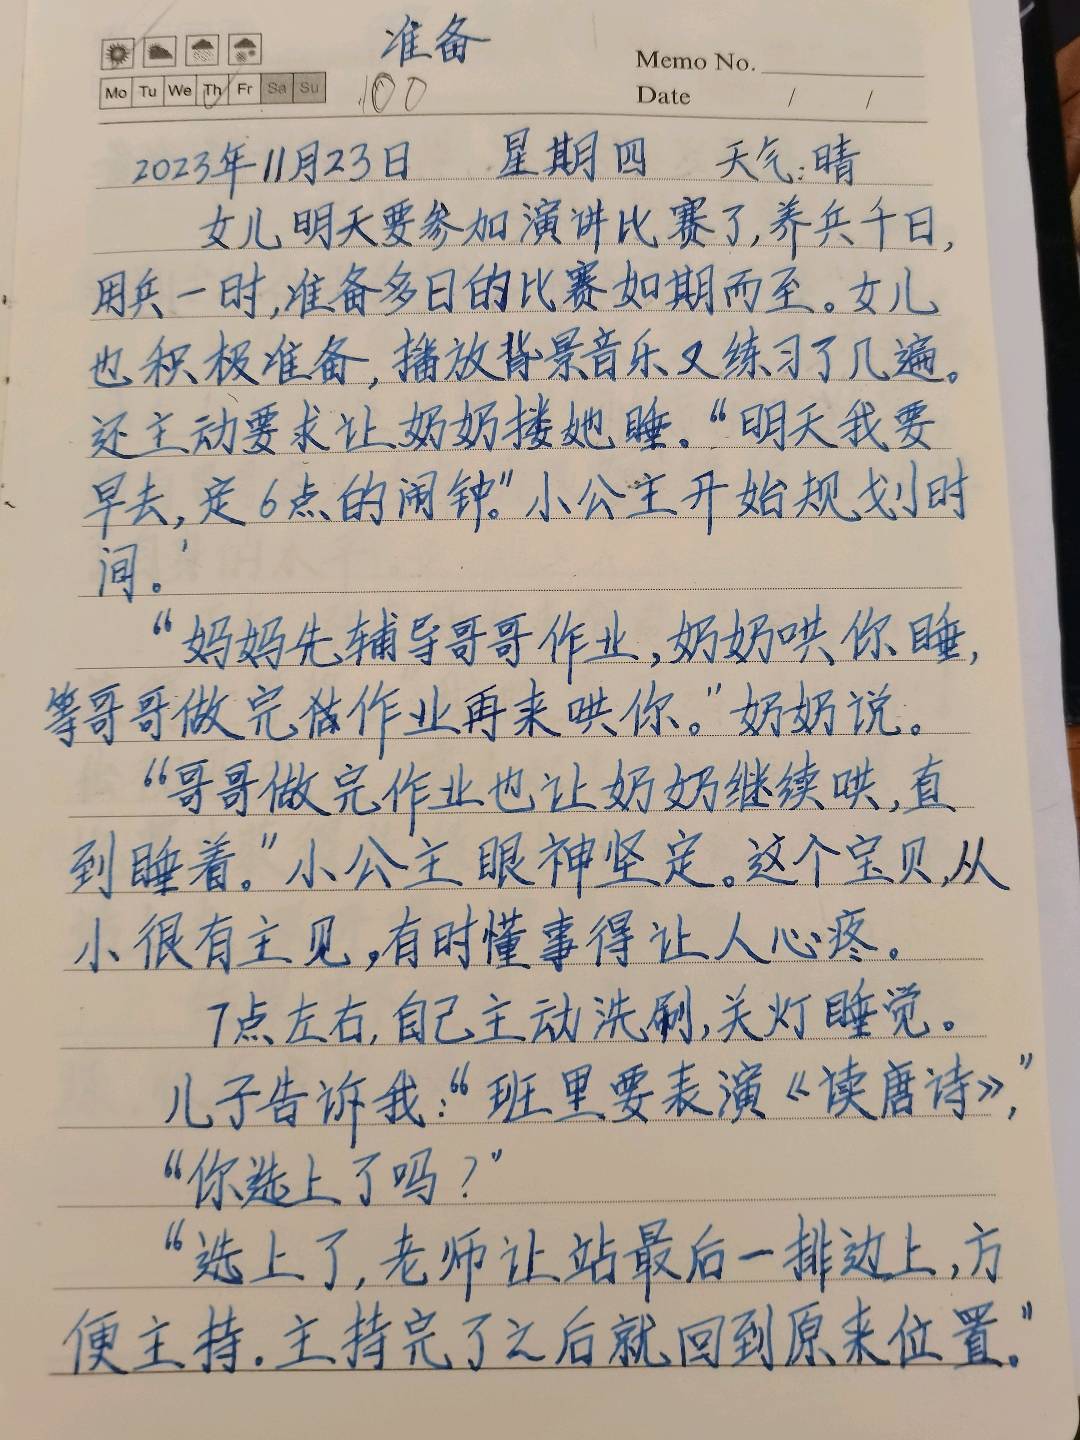 准备
Memo No.
Mo Tu We Th Fr Sa Su
100
Date / /
2023年11月23日 星期四 天气:晴
女儿明天要参加演讲比赛了,养兵千日,
用兵一时,准备多日的比赛如期而至。女儿
也积极准备,播放背景音乐又练习了几遍。
还主动要求让奶奶搂她睡.“明天我要
早去,定6点的闹钟。”小公主开始规划时
间。
“妈妈先辅导哥哥作业,奶奶哄你睡,
等哥哥做完作业再来哄你。”奶奶说。
“哥哥做完作业也让奶奶继续哄,直
到睡着。”小公主眼神坚定。这个宝贝,从
小很有主见,有时懂事得让人心疼。
7点左右,自己主动洗刷,关灯睡觉。
儿子告诉我:“班里要表演《读唐诗》,”
“你选上了吗?”
“选上了,老师让站最后一排边上,方
便主持.主持完了之后就回到原来位置。”